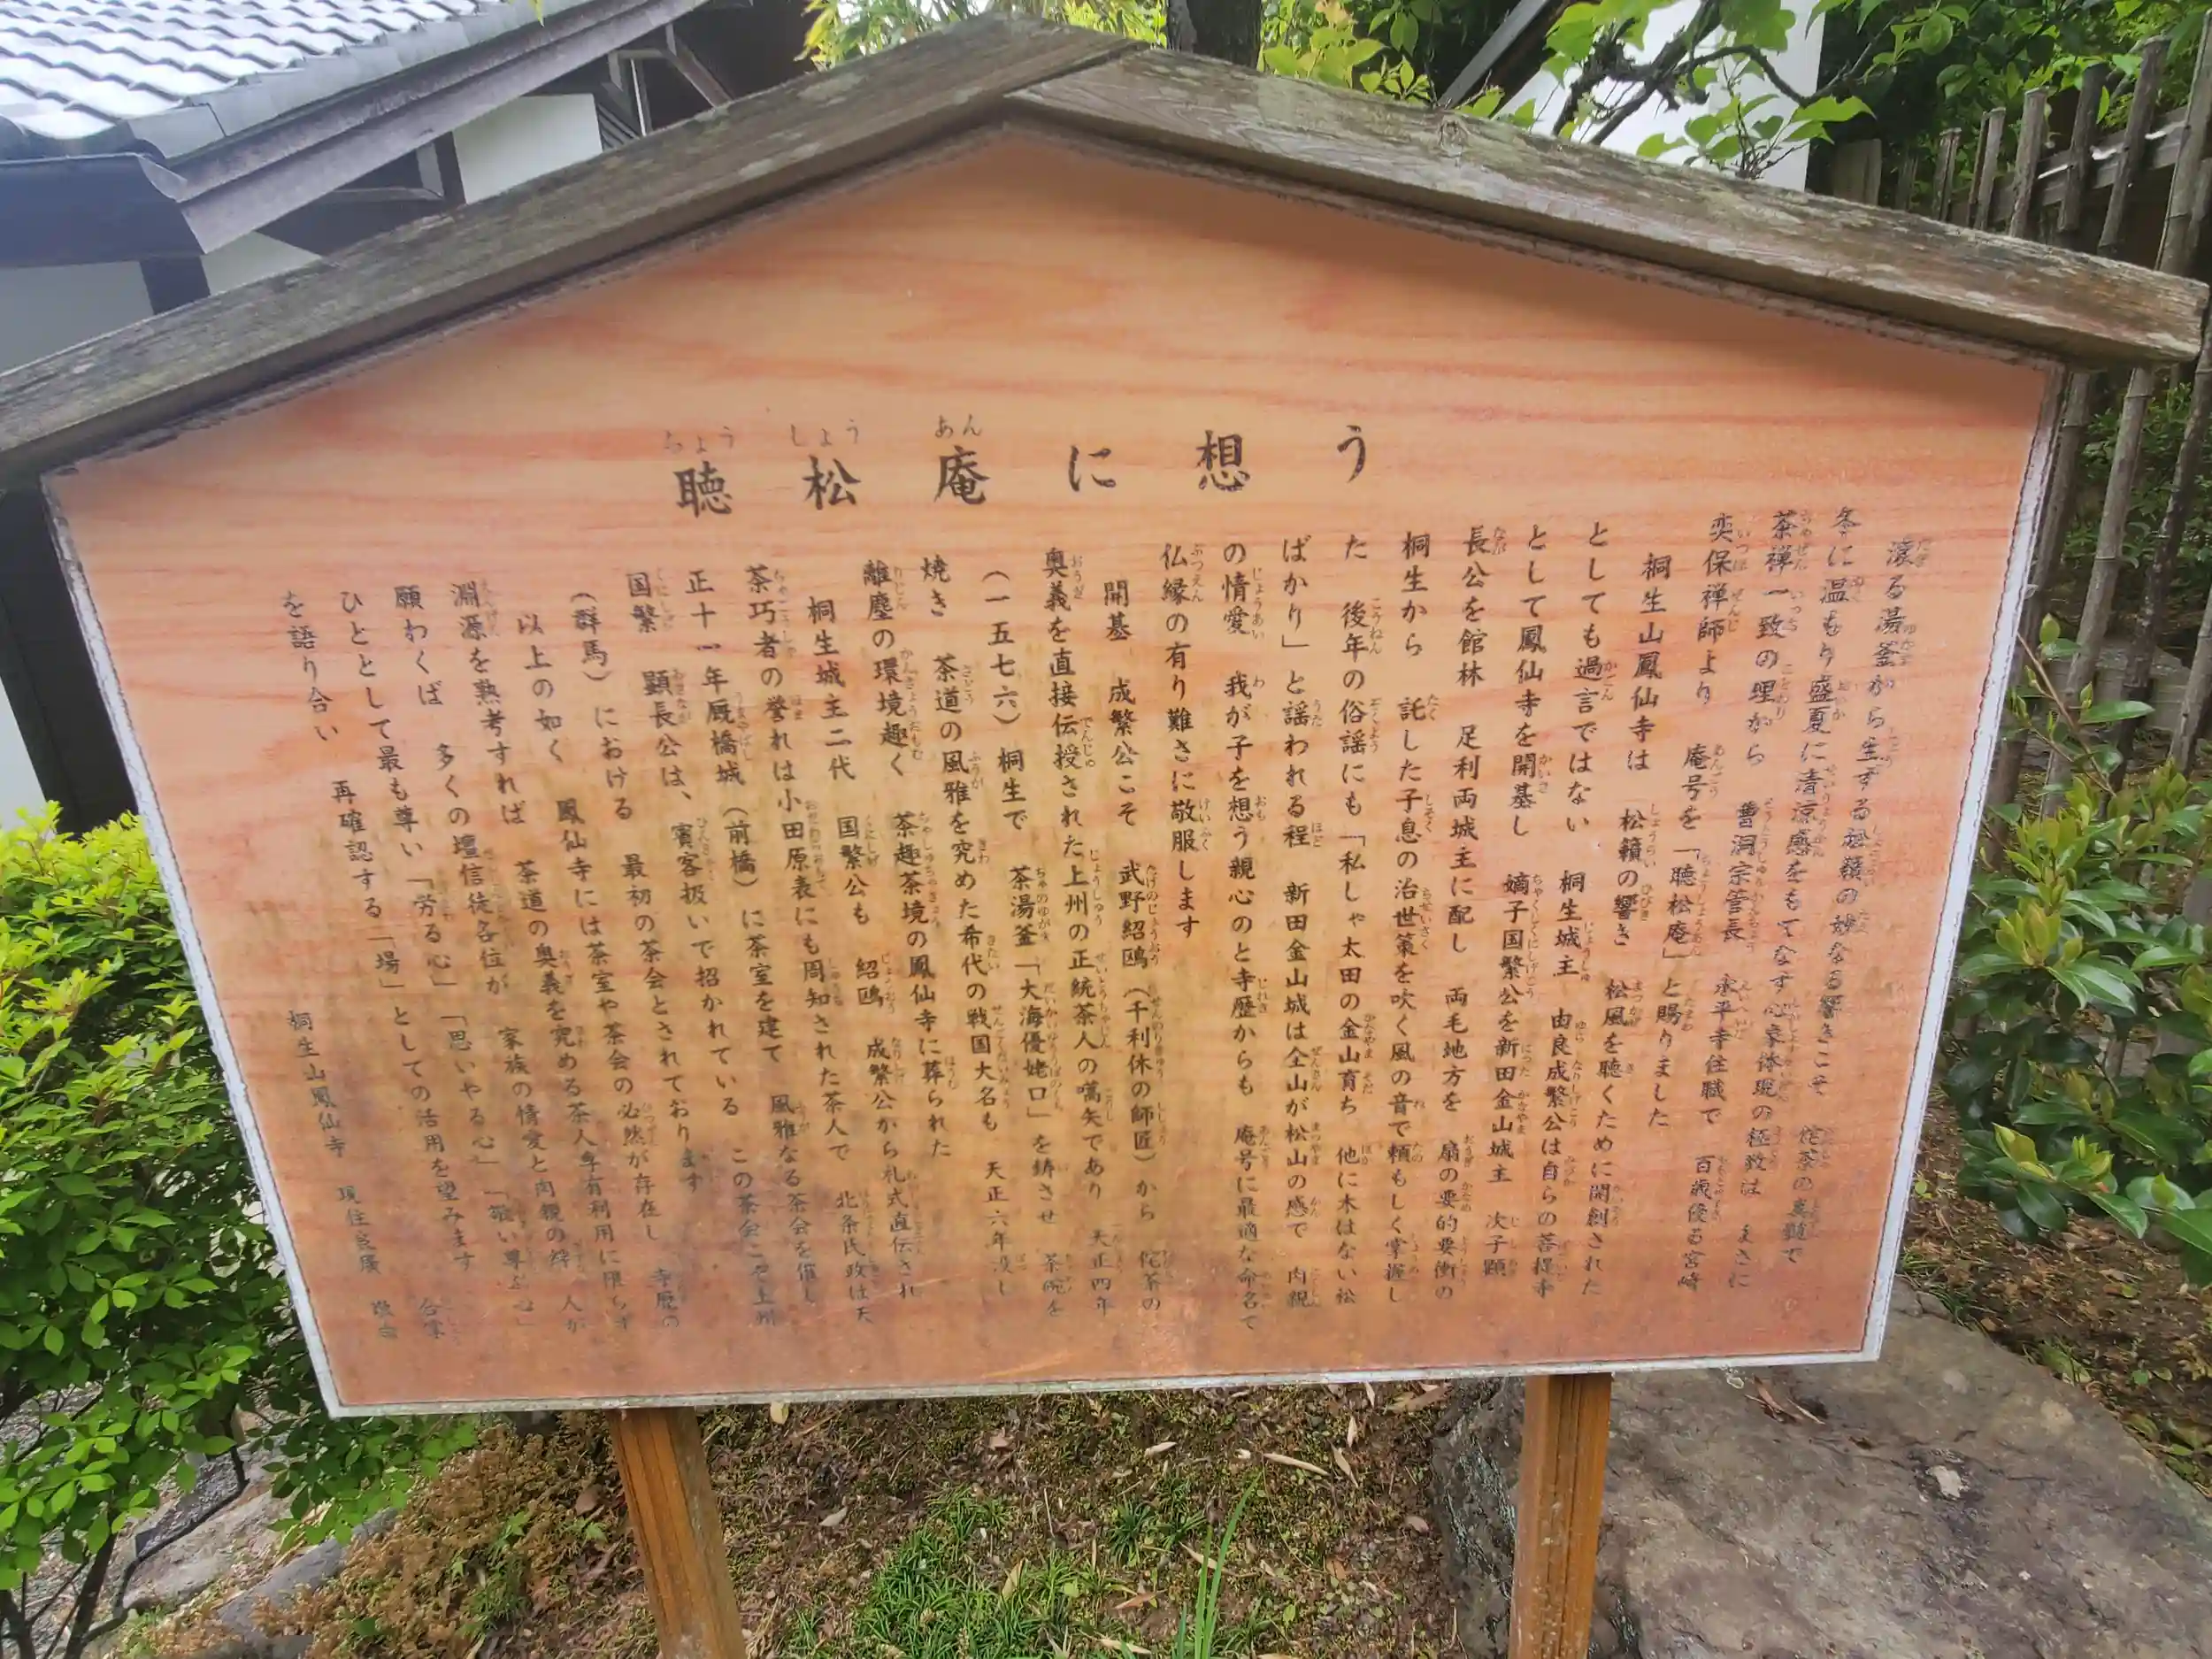 聴松庵に想う
滾る湯釜から生ずる松籟の妙なる響きこそ 侘茶の真髄で
冬に温もり盛夏に清涼感をもてなす心象体現の極致は まさに
茶禅一致の理から 曹洞宗管長 永平寺住職で 百歳優る宮崎
奕保禅師より 庵号を「聴松庵」と賜りました
桐生山鳳仙寺は 松籟の響き 松風を聴くために開創された
としても過言ではない 桐生城主 由良成繁公は自らの菩提寺
として鳳仙寺を開基し 嫡子国繁公を新田金山城主 次子顕
長公を館林 足利両城主に配し 両毛地方を 扇の要的要衝の
桐生から 託した子息の治世策を吹く風の音で頼もしく掌握し
た 後年の俗謡にも「私しゃ太田の金山育ち 他に木はない松
ばかり」と謡われる程 新田金山城は全山が松山の感で 肉親
の情愛 我が子を想う親心のと寺歴からも 庵号に最適な命名で
仏縁の有り難さに敬服します
開基 成繁公こそ 武野紹鴎(千利休の師匠)から 侘茶の
奥義を直接伝授された上州の正統茶人の嚆矢であり 天正四年
(一五七六)桐生で 茶湯釜「大海優姥口」を鋳させ 茶碗を
焼き 茶道の風雅を究めた希代の戦国大名も 天正六年没し
離塵の環境趣く 茶趣茶境の鳳仙寺に葬られた
桐生城主二代 国繁公も 紹鴎 成繁公から礼式直伝され
茶巧者の誉れは小田原表にも周知された茶人で 北条氏政は天
正十一年厩橋城(前橋)に茶室を建て 風雅なる茶会を催し
国繁 顕長公は、賓客扱いで招かれている この茶会こそ上州
(群馬)における 最初の茶会とされております
以上の如く 鳳仙寺には茶室や茶会の必然が存在し 寺歴の
淵源を熟考すれば 茶道の奥義を究める茶人専有利用に限らず
願わくば 多くの壇信徒各位が 家族の情愛と肉親の絆 人が
ひととして最も尊い「労る心」「思いやる心」「敬い尊ぶ心」
を語り合い 再確認する「場」としての活用を望みます
合掌
桐生山鳳仙寺 現住
敬白